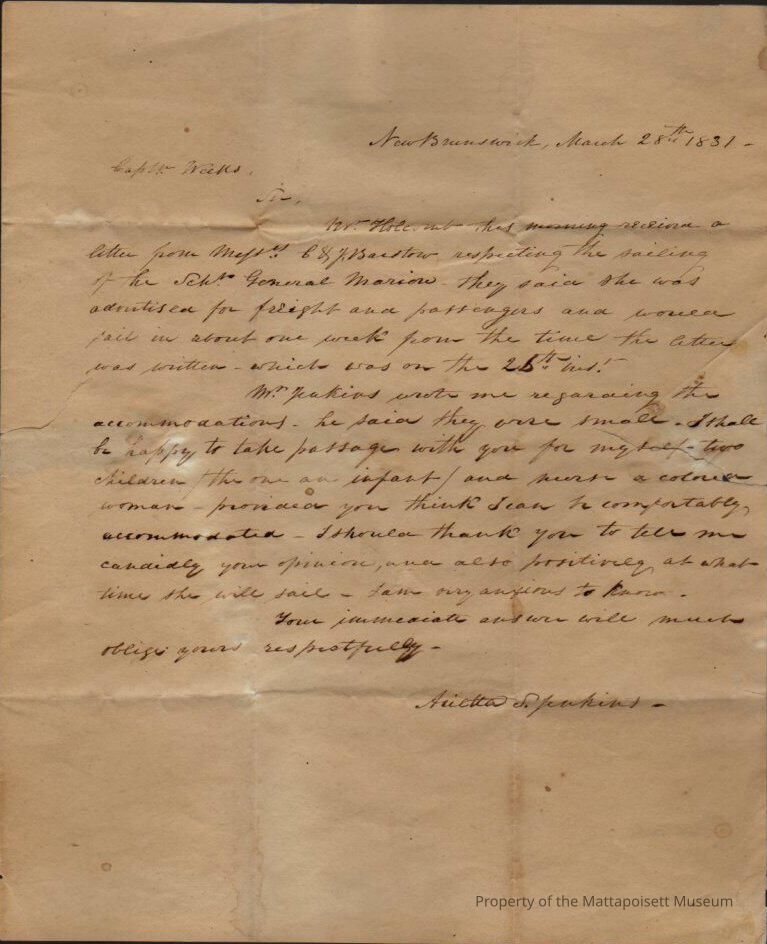 New Brunswick, March 28th 1831 -
Captn Weeks,
Sir,
Mr. Holcomb this morning received a
letter from Messrs. C & J Barstow respecting the sailing
of the Schr. General Marion - they said she was
advertised for freight and passengers and would
sail in about one week from the time the letter
was written - which was on the 25th inst.
Mr. Jenkins wrote me regarding the
accommodations - he said they were small - I shall
be happy to take passage with you for myself - two
children (the one an infant) and nurse a colored
woman - provided you think I can be comfortably
accommodated - I should thank you to tell me
candidly your opinion, and also positively at what
time she will sail - I am very anxious to know.
Your immediate answer will much
oblige yours respectfully -
S. Jenkins -
Property of the Mattapoisett Museum